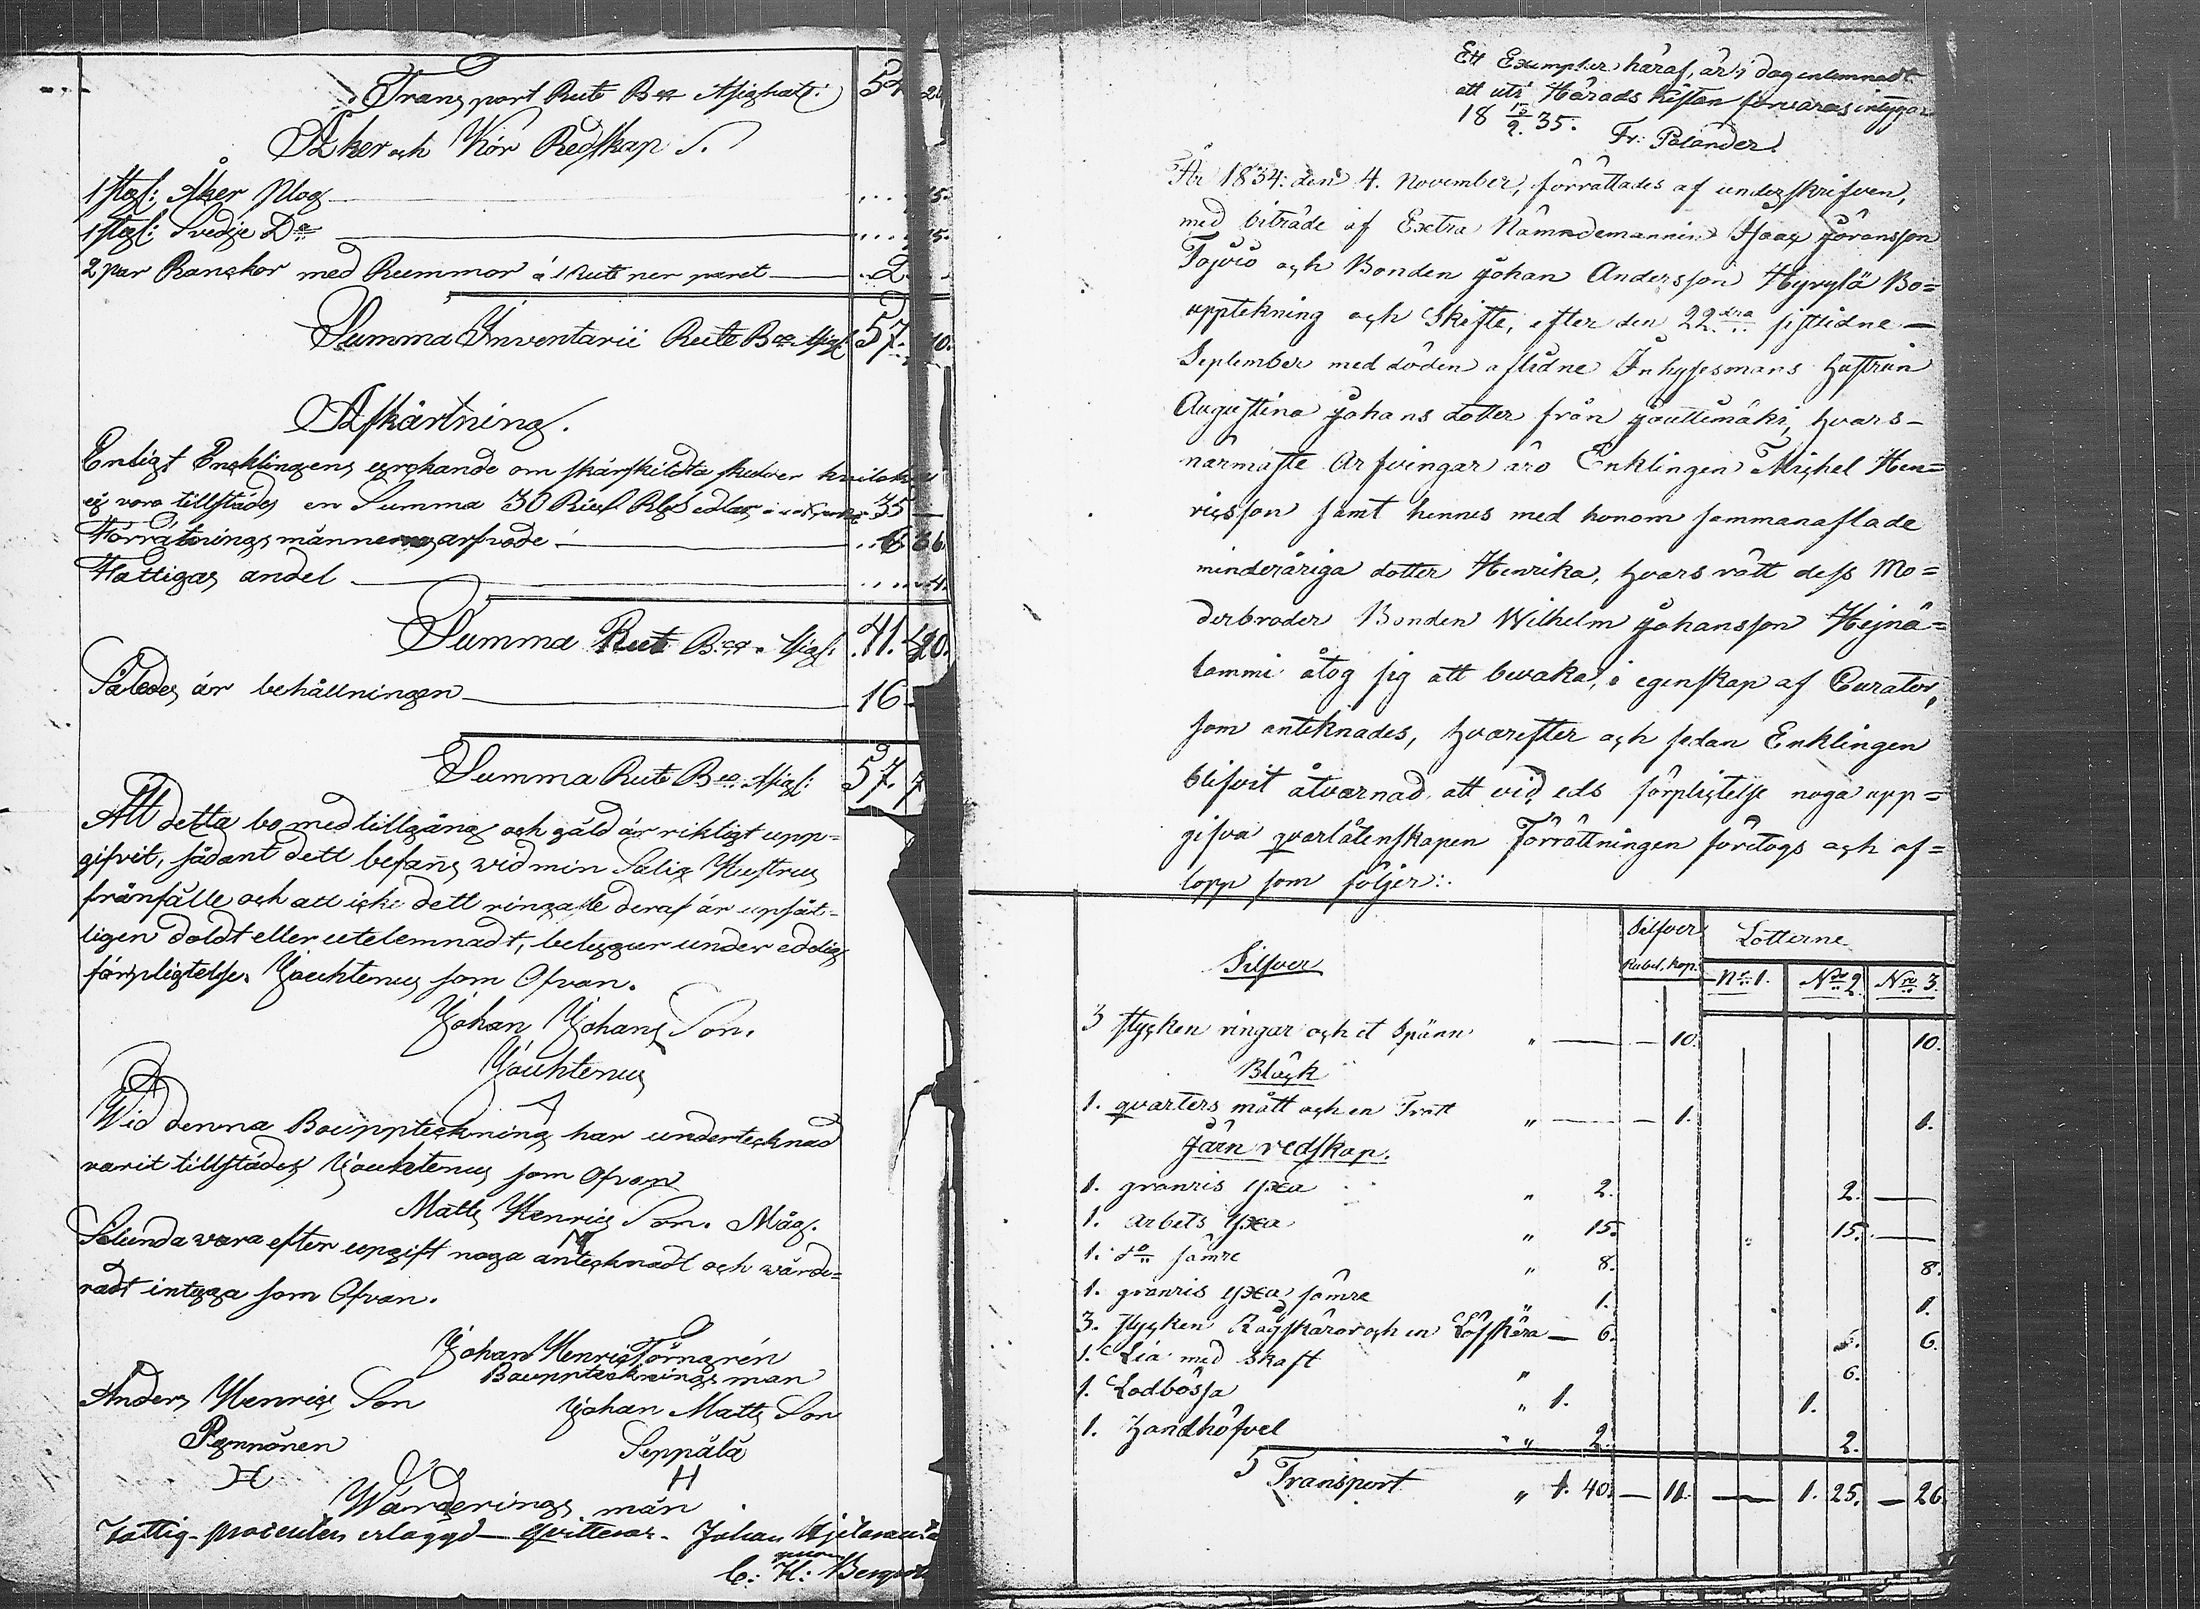 Transport Rub B:co Assignats: 54 20
Åker och Kör Redskap
1 styk: Åker Plog ... 45.
1 styk: Svedje D:o ... 45.
2 par Ranskor med Rummor á 1 Rub per paret 2
Summa Inventarii Rub B:co Assig: 57. 10.
Afkårtning.
Enligt Encklingens erckande om skärskildta skulder hvilcka
ej voro tillstädes en Summa 30 Riksd Rgs Sedlar 35
Förrätnings männernas arfvode 6 36
Fattigas andel 4
Summa Rub B:co Assig: 41. 40.
Således är behållningen 16
Summa Rub B:co Assig: 57. 7
Att detta bo med tillgång och gäld är riktigt upp=
gifvit, sådant dett befans wid min Salig Hustrus
frånfälle och att icke dett ringaste deraf är upsåt=
ligen doldt eller utelemnadt, betygar under edelig
förpligtelse. Jouhtenus som Ofvan.
Johan Johans Son.
Jouhtenus
Wid denna Bouppteckning har undertecknad
varit tillstädes Jouhtenus som Ofvan
Matts Henrics Son. Måg.
Sålunda vara efter upgift noga antecknadt och värde=
radt intyga som Ofvan.
Johan Henric Törngrén
Bouppteckningsman
Anders Henrics Son Johan Matts Son
Pennonen Seppälä
Wärderings män
Fattig-procenten erlaggd qvitteras. Johan
C: H: Bergroth
Ett Exemplar häraf, är i dag inlemnadt
att uti Härads kistan förvaras intygar
18 15/2. 35. Fr: Polander.
År 1834: den 4. November, förrättades af underskrifven,
med biträde af Extra Nämndemannen Isaac Göransson
Tojviö och Bonden Johan Andersson Hyrylä Bo=
upptekning och Skifte, efter den 22dra sistlidne
September med döden aflidne Inhysesmans hustrun
Augustina Johans dotter från Jouttimäki, hvars
närmaste Arfvingar äro Enklingen Michel Hen=
ricsson samt hennes med honom sammanaflade
minderåriga dotter Henrika, hvars rätt dess Mo=
derbroder Bonden Wilhelm Johansson Hejnä=
lammi åtog sig att bevaka, i egenskap af Curator,
som anteknades, hvarefter och sedan Enklingen
blifvit åtvarnad att vid eds förplictelse noga upp=
gifva qvarlåtenskapen Förrättningen företogs och af=
lopp som följer:
Silfver Lotterne
Silfver Rubel. kop. Nr: 1. Nro 2 Nro 3.
3 stycken ringar och et Spänn " 10. 10.
Bläck
1. qvarters mått och en Tratt " 1. 1.
Järn redskap.
1. granris yxa " 2. 2.
1. arbets yxa " 15. 15.
1. do sämre " 8. 8.
1. granris yxa sämre " 1. 1.
3. stycken Rågskäror och en Löfskära 6. 6.
1. Lia med skaft " 6.
1. Lodbössa " 1. 1.
1. Handhöfvel " 2. 2.
Transport " 1. 40. 11. 1. 25. 26.